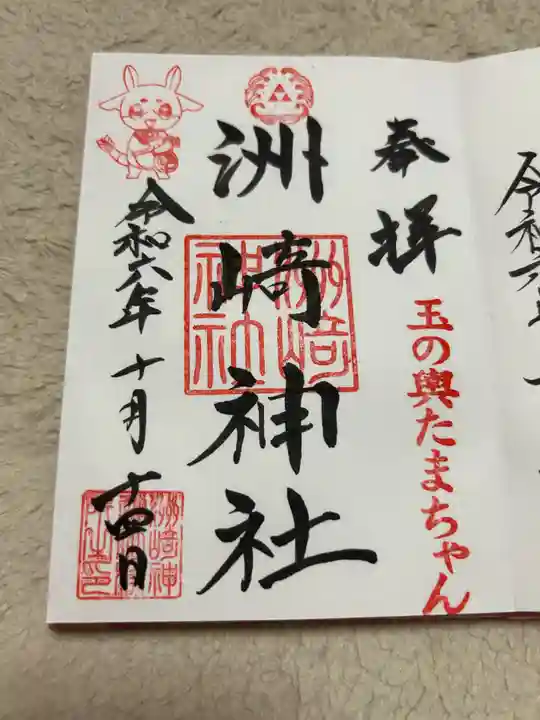 奉拝
玉の輿たまちゃん
洲崎神社
洲崎神社
令和六年十月十四日
令和六年十